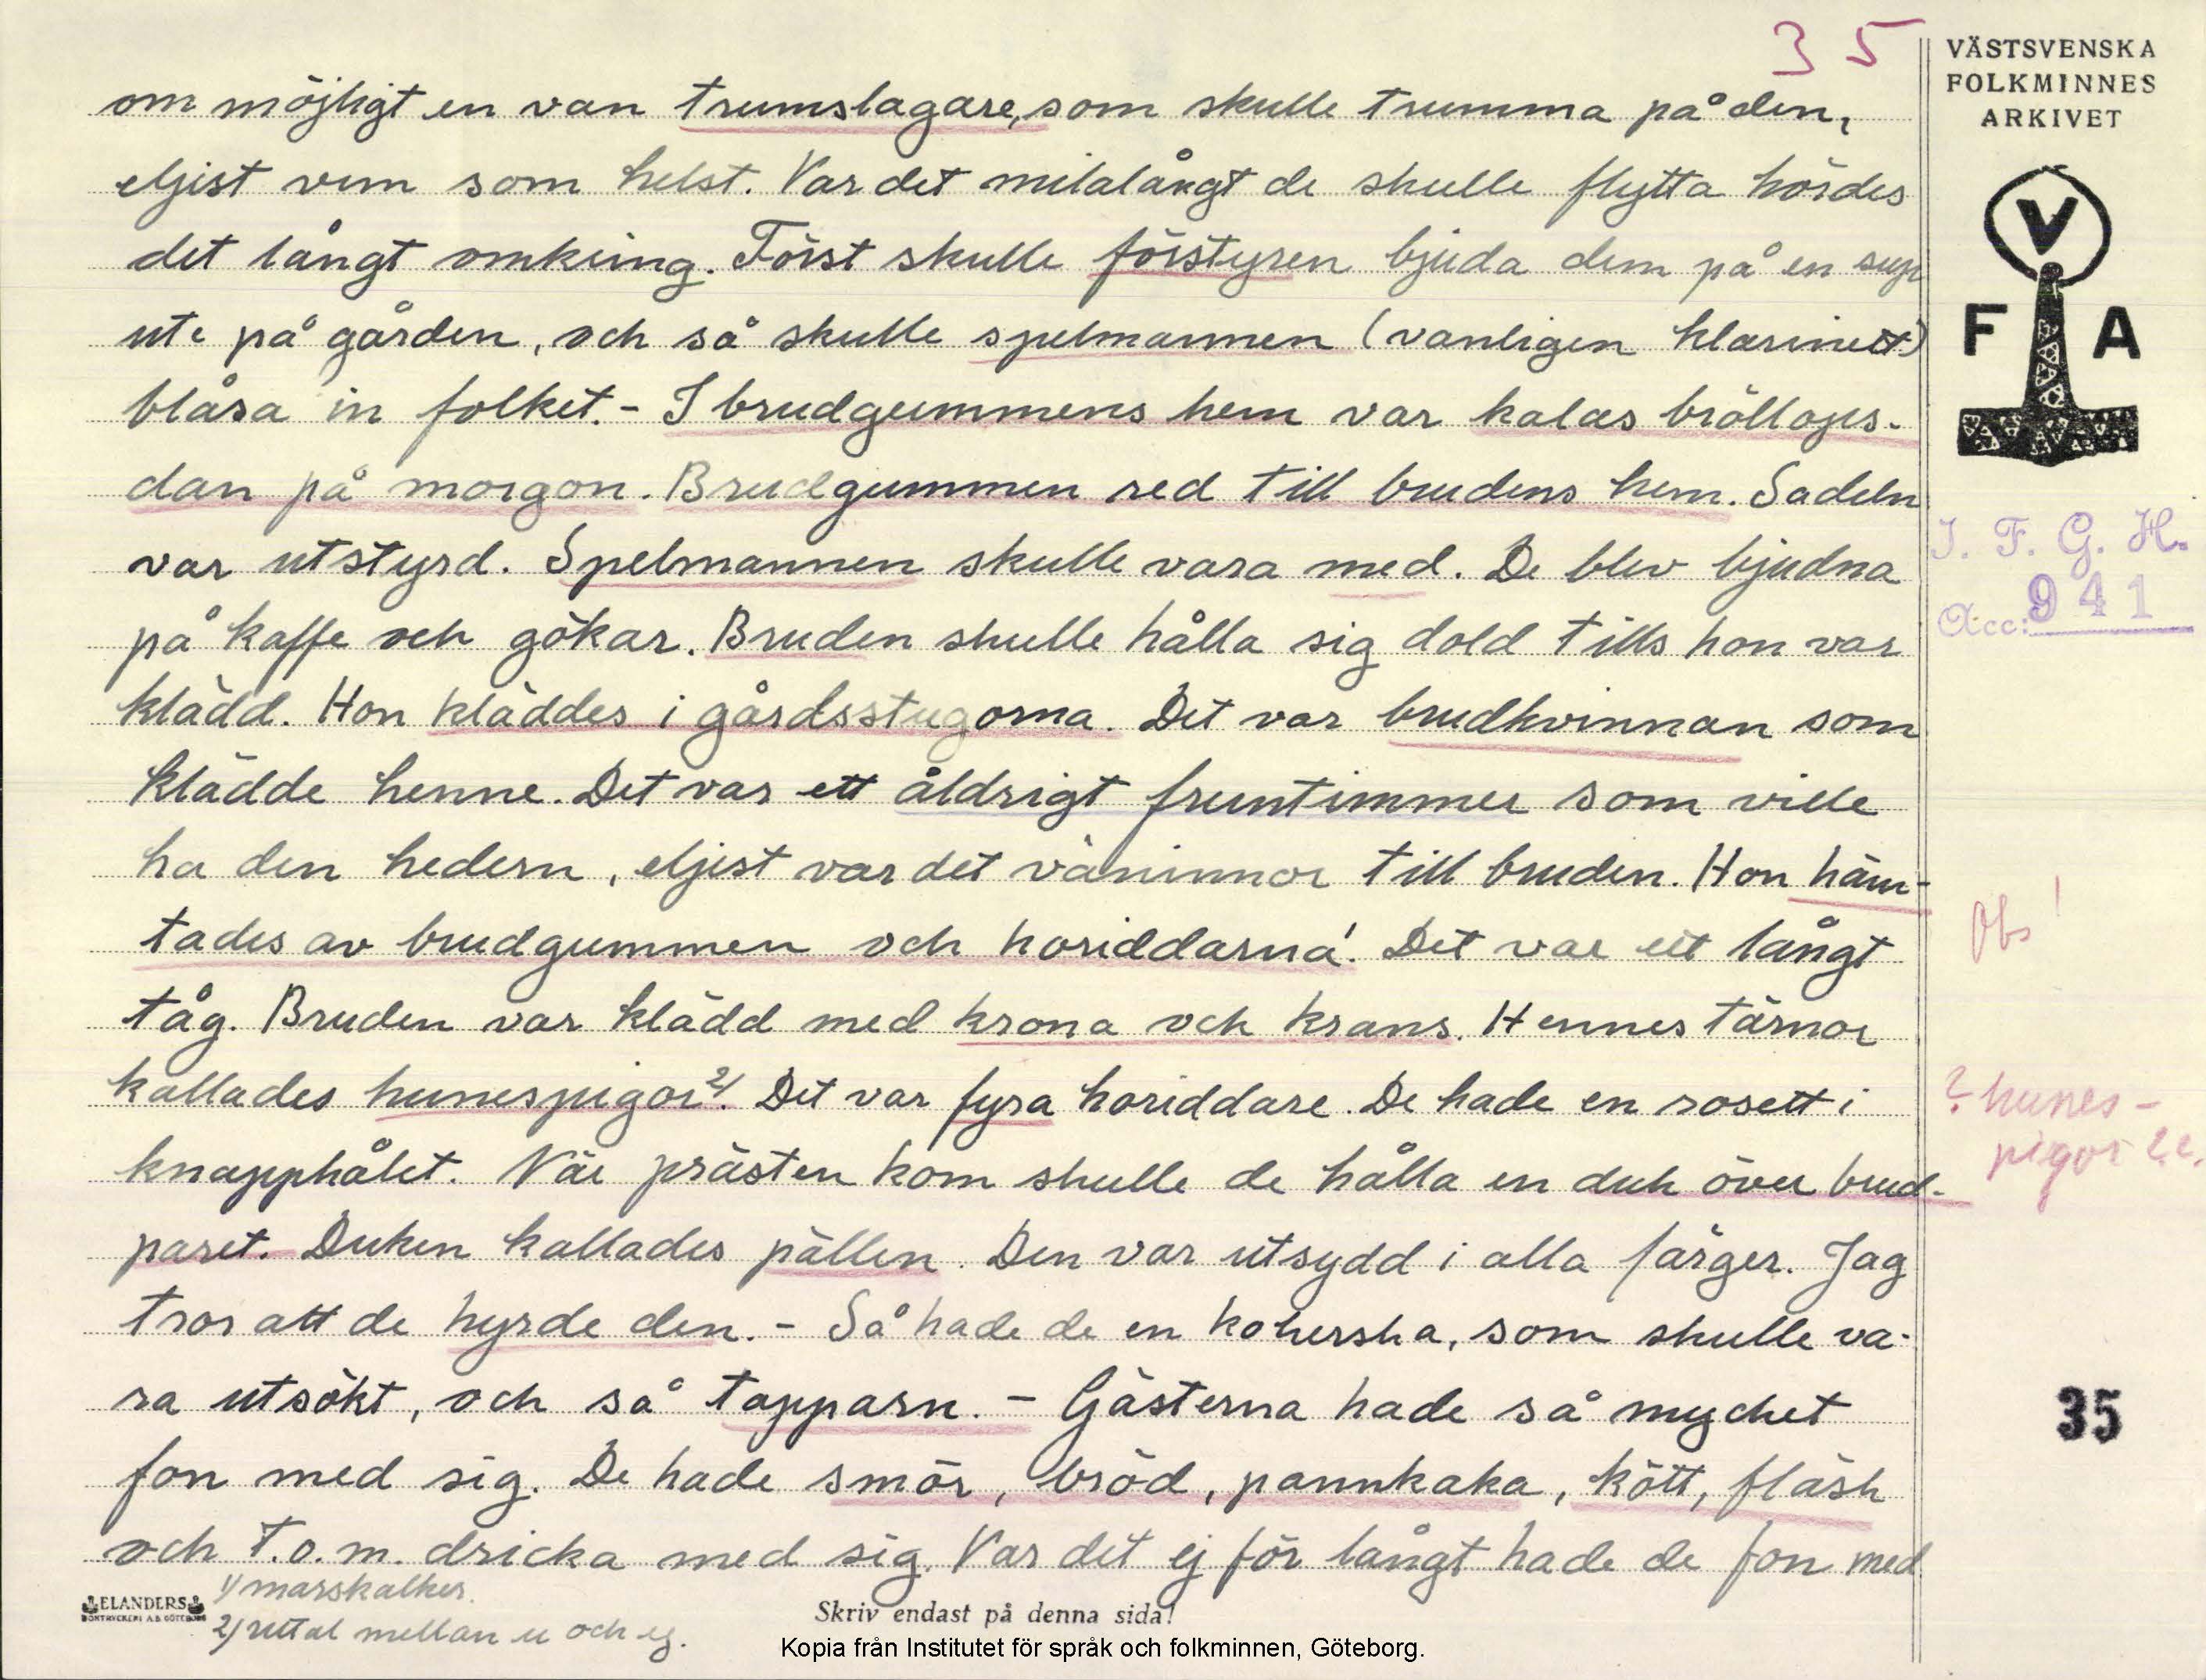 35
VÄSTSVENSKA
FOLKMINNES
ARKIVET
om möjligt en van trumslagare, som skulle trumma på den,
eljist vem som helst. Var det milalångt de skulle flytta hördes
det långt omkring. Först skulle förstyren bjuda dem på en sup
ute på gården, och så skulle spelmannen (vanligen klarinett)
blåsa in folket. - I brudgummens hem var kalas bröllops-
dan på morgon. Brudgummen red till brudens hem. Sadeln
var utstyrd. Spelmannen skulle vara med. De blev bjudna
på kaffe och gökar. Bruden skulle hålla sig dold tills hon var
klädd. Hon kläddes i gårdsstugorna. Det var brudkvinnan som
klädde henne. Det var ett åldrigt fruntimmer som ville
ha den hedern, eljist var det väninnor till bruden. Hon häm-
tades av brudgummen och horiddarna¹. Det var ett långt
tåg. Bruden var klädd med krona och krans. Hennes tärnor
kallades hunespigor²⁾. Det var fyra horiddare. De hade en rosett i
knapphålet. När prästen kom skulle de hålla en duk över brud-
paret. Duken kallades pällen. Den var utsydd i alla färger. Jag
tror att de hyrde den. - Så hade de en kokerska, som skulle va-
ra utsökt, och så tapparn. - Gästerna hade så mychet
fon med sig. De hade smör, bröd, pannkaka, kött, fläsk
och t.o.m. dricka med sig. Var det ej för långt hade de fon med
1) marskalker.
2) uttal mellan u och y.
V
F A
I. F. G. H.
Acc: 941
Obs!
? hunes-
pigor
35
ELANDERS
BOKTRYCKERI A.B. GÖTEBORG
Skriv endast på denna sida!
Kopia från Institutet för språk och folkminnen, Göteborg.